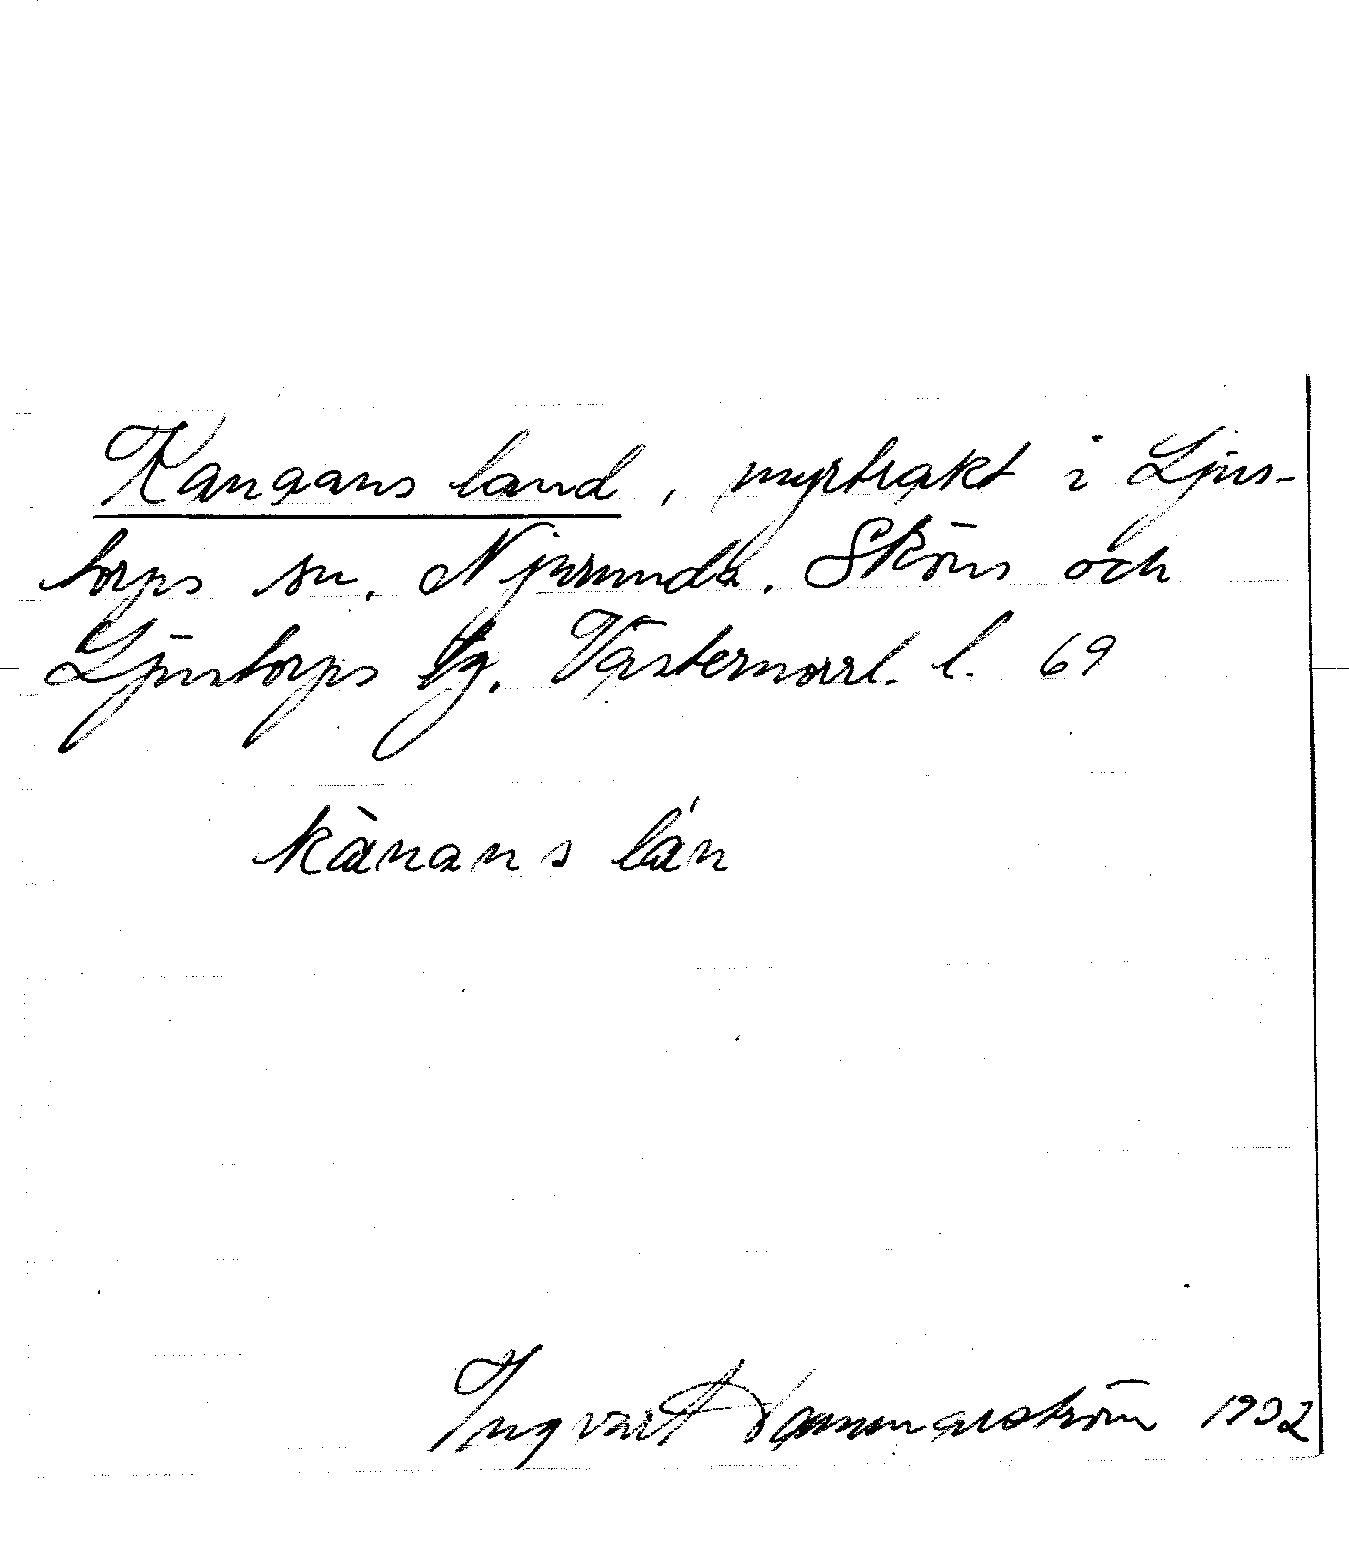 Kanaans land, myrtrakt i Ljus-
torps sn. Njurunda, Sköns och
Ljustorps tg. Västernorrl. l. 69
kànans lán
Ingvart Hammarström 1932